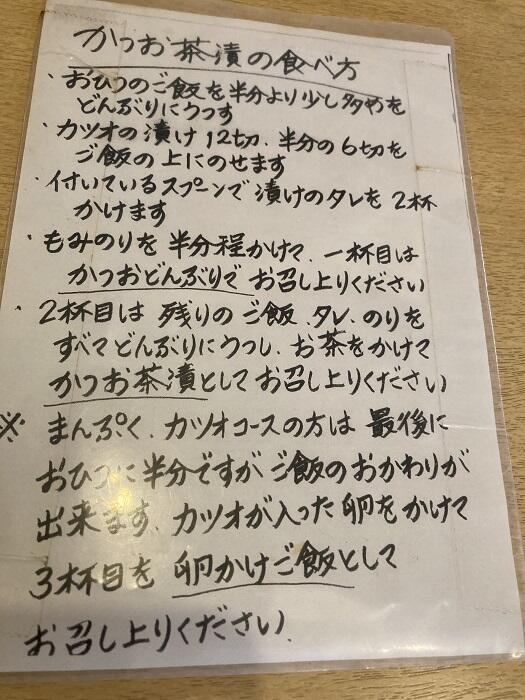 かつお茶漬の食べ方
・おひつのご飯を半分より少し多めを
どんぶりにうつす
・カツオの漬け12切、半分の6切を
ご飯の上にのせます
・付いているスプーンで漬けのタレを2杯
かけます
・もみのりを半分程かけて、一杯目は
かつおどんぶりでお召し上りください
・2杯目は残りのご飯、タレ、のりを
すべてどんぶりにうつし、お茶をかけて
かつお茶漬としてお召し上りください
※まんぷく、カツオコースの方は最後に
おひつに半分ですがご飯のおかわりが
出来ます、カツオが入った卵をかけて
3杯目を卵かけご飯として
お召し上りください、